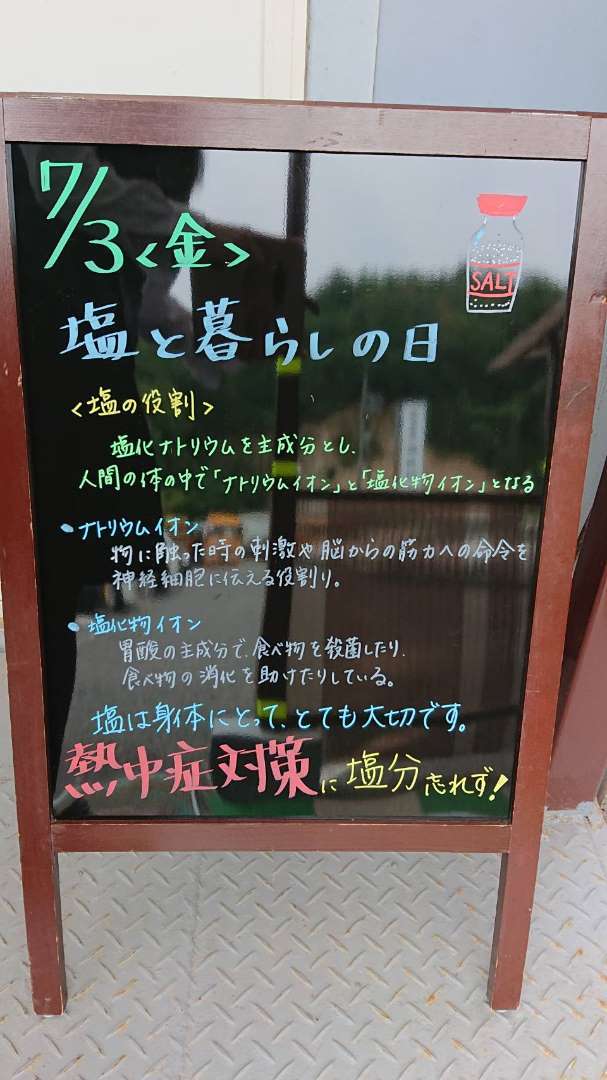 7/3<金>
SALT
塩と暮らしの日
<塩の役割>
塩化ナトリウムを主成分とし、
人間の体の中で「ナトリウムイオン」と「塩化物イオン」となる
•ナトリウムイオン
物に触った時の刺激や脳からの筋力への命令を
神経細胞に伝える役割り。
•塩化物イオン
胃酸の主成分で、食べ物を殺菌したり、
食べ物の消化を助けたりしている。
塩は身体にとって、とても大切です。
熱中症対策に塩分忘れず!